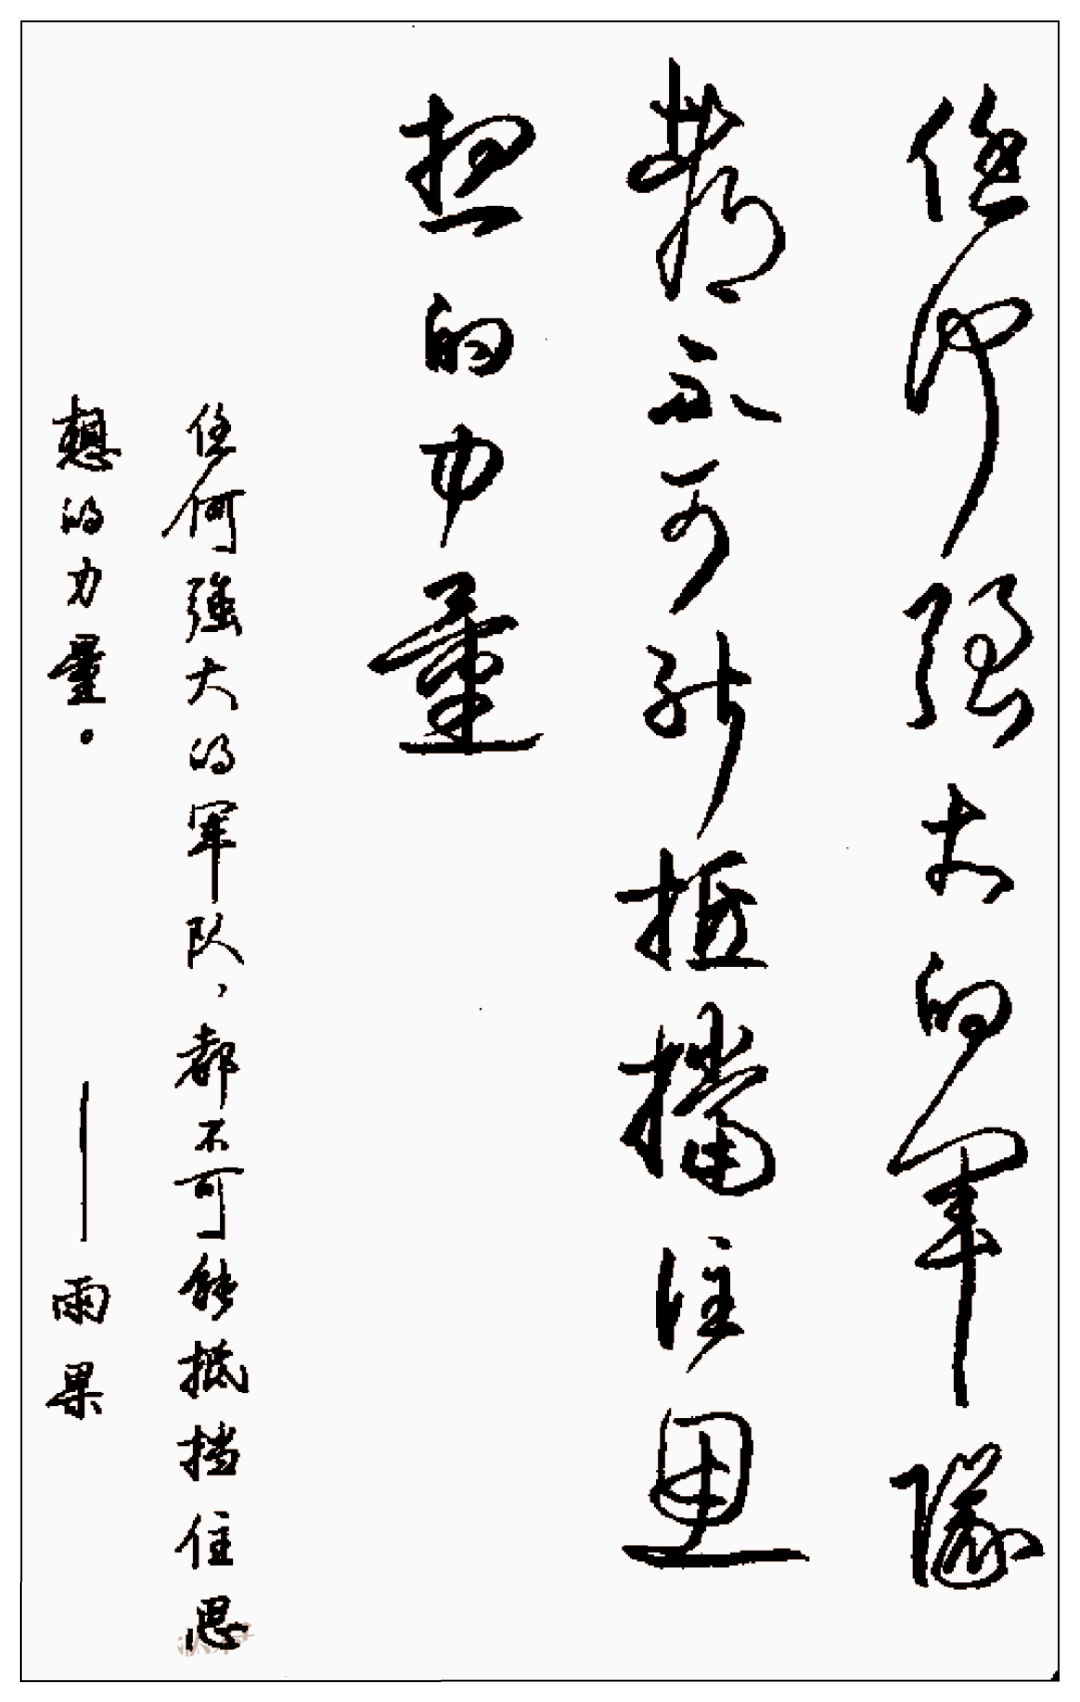 任何强大的军隊
都不可能抵擋住思
想的力量
任何強大的军队，都不可能抵挡住思
想的力量。——雨果